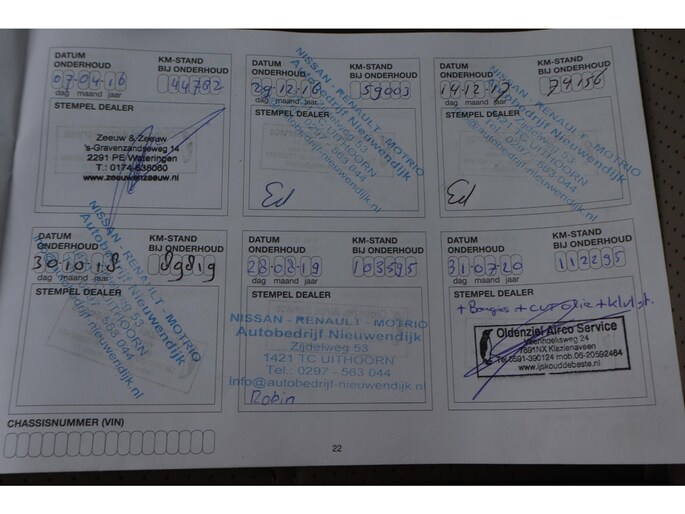 DATUM ONDERHOUD
KM-STAND BIJ ONDERHOUD
07-04-16
44782
dag maand jaar
STEMPEL DEALER
Zeeuw & Zeeuw
's-Gravenzandseweg 14
2291 PE Wateringen
T.: 0174-636060
www.zeeuwenzeeuw.nl
DATUM ONDERHOUD
KM-STAND BIJ ONDERHOUD
29-12-16
59003
dag maand jaar
STEMPEL DEALER
NISSAN - RENAULT - MOTRIO
Autobedrijf Nieuwendijk
UITHOORN
563 044
Ed
DATUM ONDERHOUD
KM-STAND BIJ ONDERHOUD
14-12-17
74156
dag maand jaar
STEMPEL DEALER
NISSAN - RENAULT - MOTRIO
Autobedrijf Nieuwendijk
UITHOORN
0297 - 563 044
@autobedrijf-nieuwendijk.nl
Ed
DATUM ONDERHOUD
KM-STAND BIJ ONDERHOUD
30-10-18
89819
dag maand jaar
STEMPEL DEALER
NISSAN - RENAULT - MOTRIO
Autobedrijf Nieuwendijk
53
UITHOORN
563 044
DATUM ONDERHOUD
KM-STAND BIJ ONDERHOUD
28-08-19
103595
dag maand jaar
STEMPEL DEALER
NISSAN - RENAULT - MOTRIO
Autobedrijf Nieuwendijk
Zijdelweg 53
1421 TC UITHOORN
Tel.: 0297 - 563 044
info@autobedrijf-nieuwendijk.nl
Robin
DATUM ONDERHOUD
KM-STAND BIJ ONDERHOUD
31-07-20
112295
dag maand jaar
STEMPEL DEALER
+ Bougies + CVT olie +
Oldenziel Airco Service
24
7891NX Klazienaveen
Tel.0591-390124 mob.06-20592464
www.ijskouddebeste.nl
CHASSISNUMMER (VIN)
22